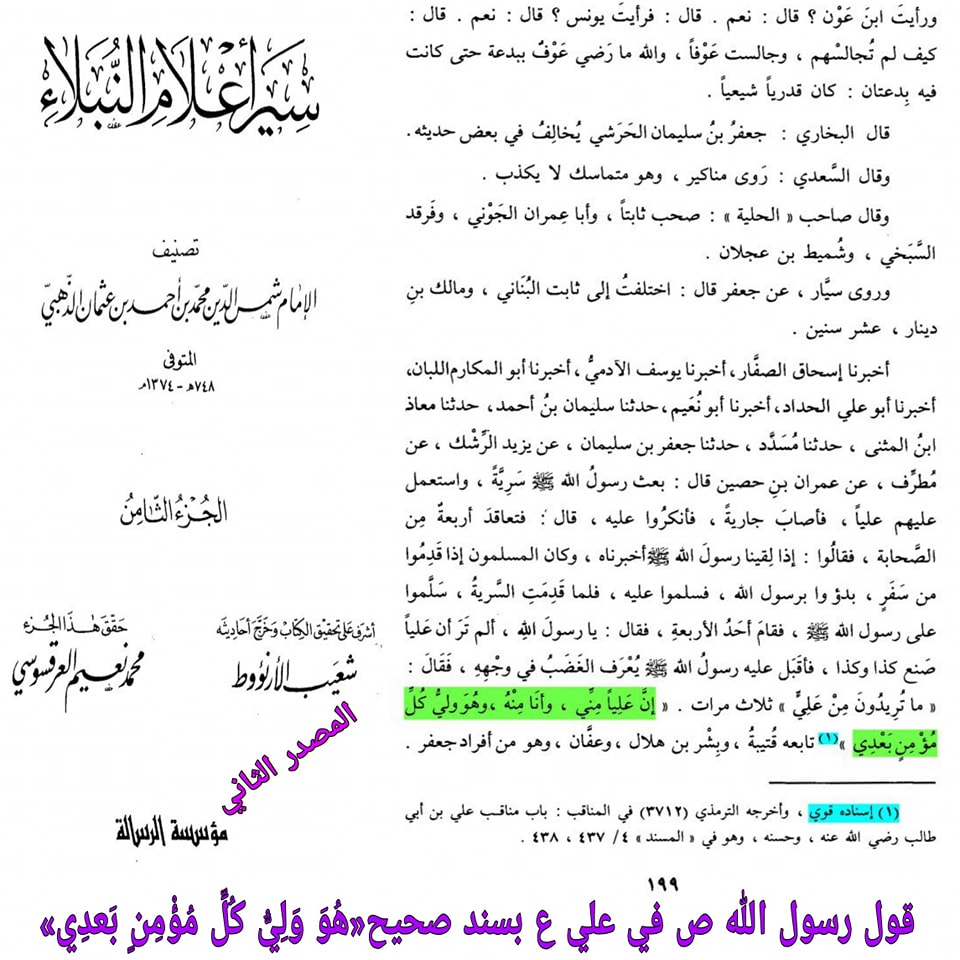 ورأيتَ ابنَ عَوْن ؟ قال : نعم . قال : فرأيتَ يونس ؟ قال : نعم . قال :
كيف لم تُجالسْهم ، وجالست عَوْفاً ، والله ما رَضي عَوْفٌ ببدعة حتى كانت
فيه بِدعتان : كان قدرياً شيعياً .
قال البخاري : جعفرُ بنُ سليمان الحَرَشي يُخالِفُ في بعض حديثه .
وقال السَّعدي : رَوى مناكير ، وهو متماسك لا يكذب .
وقال صاحب « الحلية » : صحب ثابتاً ، وأبا عِمران الجَوْني ، وفَرقد
السَّبَخي ، وشُميط بن عجلان .
وروى سيَّار ، عن جعفر قال : اختلفتُ إلى ثابت البُناني ، ومالك بنِ
دينار ، عشر سنين .
أخبرنا إسحاق الصفَّار ، أخبرنا يوسف الآدميُّ ، أخبرنا أبو المكارم اللبان ،
أخبرنا أبو علي الحداد ، أخبرنا أبو نُعَيم ، حدثنا سليمان بنُ أحمد ، حدثنا معاذ
ابنُ المثنى ، حدثنا مُسَدَّد ، حدثنا جعفر بن سليمان ، عن يزيد الرِّشْك ، عن
مُطرِّف ، عن عمران بنِ حصين قال : بعث رسولُ الله ﷺ سَرِيَّةً ، واستعمل
عليهم علياً ، فأصابَ جاريةً ، فأنكرُوا عليه ، قال : فتعاقدَ أربعةٌ مِن
الصَّحابة ، فقالُوا : إذا لقِينا رسولَ الله ﷺ أخبرناه ، وكان المسلمون إذا قَدِمُوا
من سَفَرٍ ، بدؤوا برسول الله ، فسلموا عليه ، فلما قَدِمَتِ السريةُ ، سَلَّموا
على رسول الله ﷺ ، فقامَ أحَدُ الأربعةِ ، فقال : يا رسولَ اللهِ ، ألم تَرَ أن عَلياً
صَنع كذا وكذا ، فأقبَل عليه رسولُ الله ﷺ يُعْرَف الغَضَبُ في وجهِهِ ، فَقَالَ :
« ما تُرِيدُونَ مِنْ عَلِيٍّ » ثلاث مرات . « إنَّ عَلِياً مِنِّي ، وأنَا مِنْهُ ، وهُوَ وليُّ كُلِّ
مُؤْمِنٍ بَعْدِي » (١) تابعه قُتيبةُ ، وبِشْر بن هلال ، وعفَّان ، وهو من أفراد جعفر .
(١) إسناده قوي ، وأخرجه الترمذي (٣٧١٢) في المناقب : باب مناقب علي بن أبي
طالب رضي الله عنه ، وحسنه ، وهو في « المسند » ٤ / ٤٣٧ ، ٤٣٨ .
١٩٩
سير أعلام النبلاء
تصنيف
الإمام شمس الدين محمد بن أحمد بن عثمان الذهبي
المتوفى
٧٤٨هـ - ١٣٧٤م
الجُزءُ الثَّامِنُ
أشرف على تحقيق الكتاب وخرّج أحاديثه
شعيب الأرنؤوط
حقق هذا الجزء
محمد نعيم العرقسوسي
المصدر الثاني
مؤسسة الرسالة
قول رسول الله ص في علي ع بسند صحيح«هُوَ وَلِيُّ كُلِّ مُؤْمِنٍ بَعدِي»